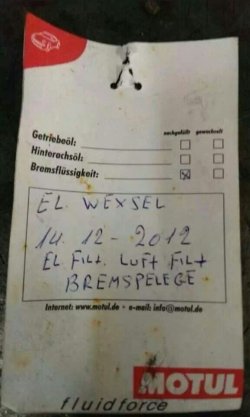 nachgefüllt gewechselt
Getriebeöl:
Hinterachsöl:
Bremsflüssigkeit:
EL. WEXSEL
14. 12 - 2012
EL FILt. LUFt FILt
BREMSPELEGE
Internet: www.motul.de • e-mail: info@motul.de
MOTUL
fluidforce